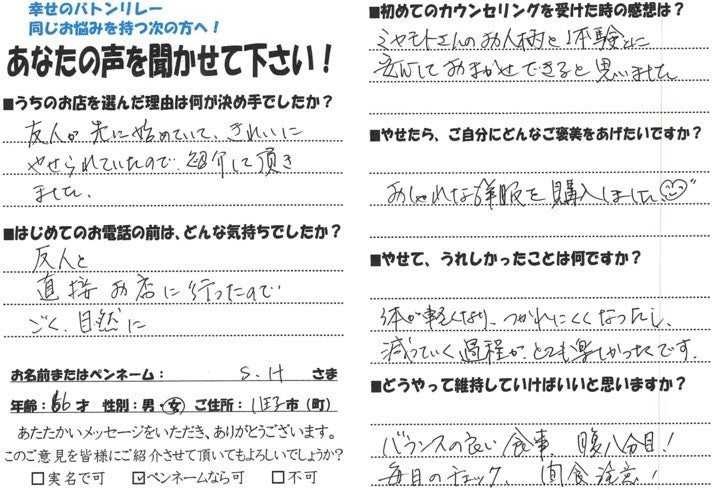 幸せのバトンリレー
同じお悩みを持つ次の方へ！
あなたの声を聞かせて下さい！
■うちのお店を選んだ理由は何が決め手でしたか？
友人が先に始めていて、きれいに
やせられていたので、紹介して頂き
ました。
■はじめてのお電話の前は、どんな気持ちでしたか？
友人と
直接お店に行ったので
ごく、自然に
お名前またはペンネーム： S.H さま
年齢：66才 性別：男・女 ご住所：八王子市（町）
あたたかいメッセージをいただき、ありがとうございます。
このご意見を皆様にご紹介させて頂いてもよろしいでしょうか？
□実名で可 ☑ペンネームなら可 □不可
■初めてのカウンセリングを受けた時の感想は？
ミヤモトさんのお人柄と体験とに
安心しておまかせできると思いました
■やせたら、ご自分にどんなご褒美をあげたいですか？
おしゃれな洋服を購入しました
■やせて、うれしかったことは何ですか？
体が軽くなり、つかれにくくなったし、
減っていく過程が、とても楽しかったです。
■どうやって維持していけばいいと思いますか？
バランスの良い食事、腹八分目！
毎日のチェック、間食注意！